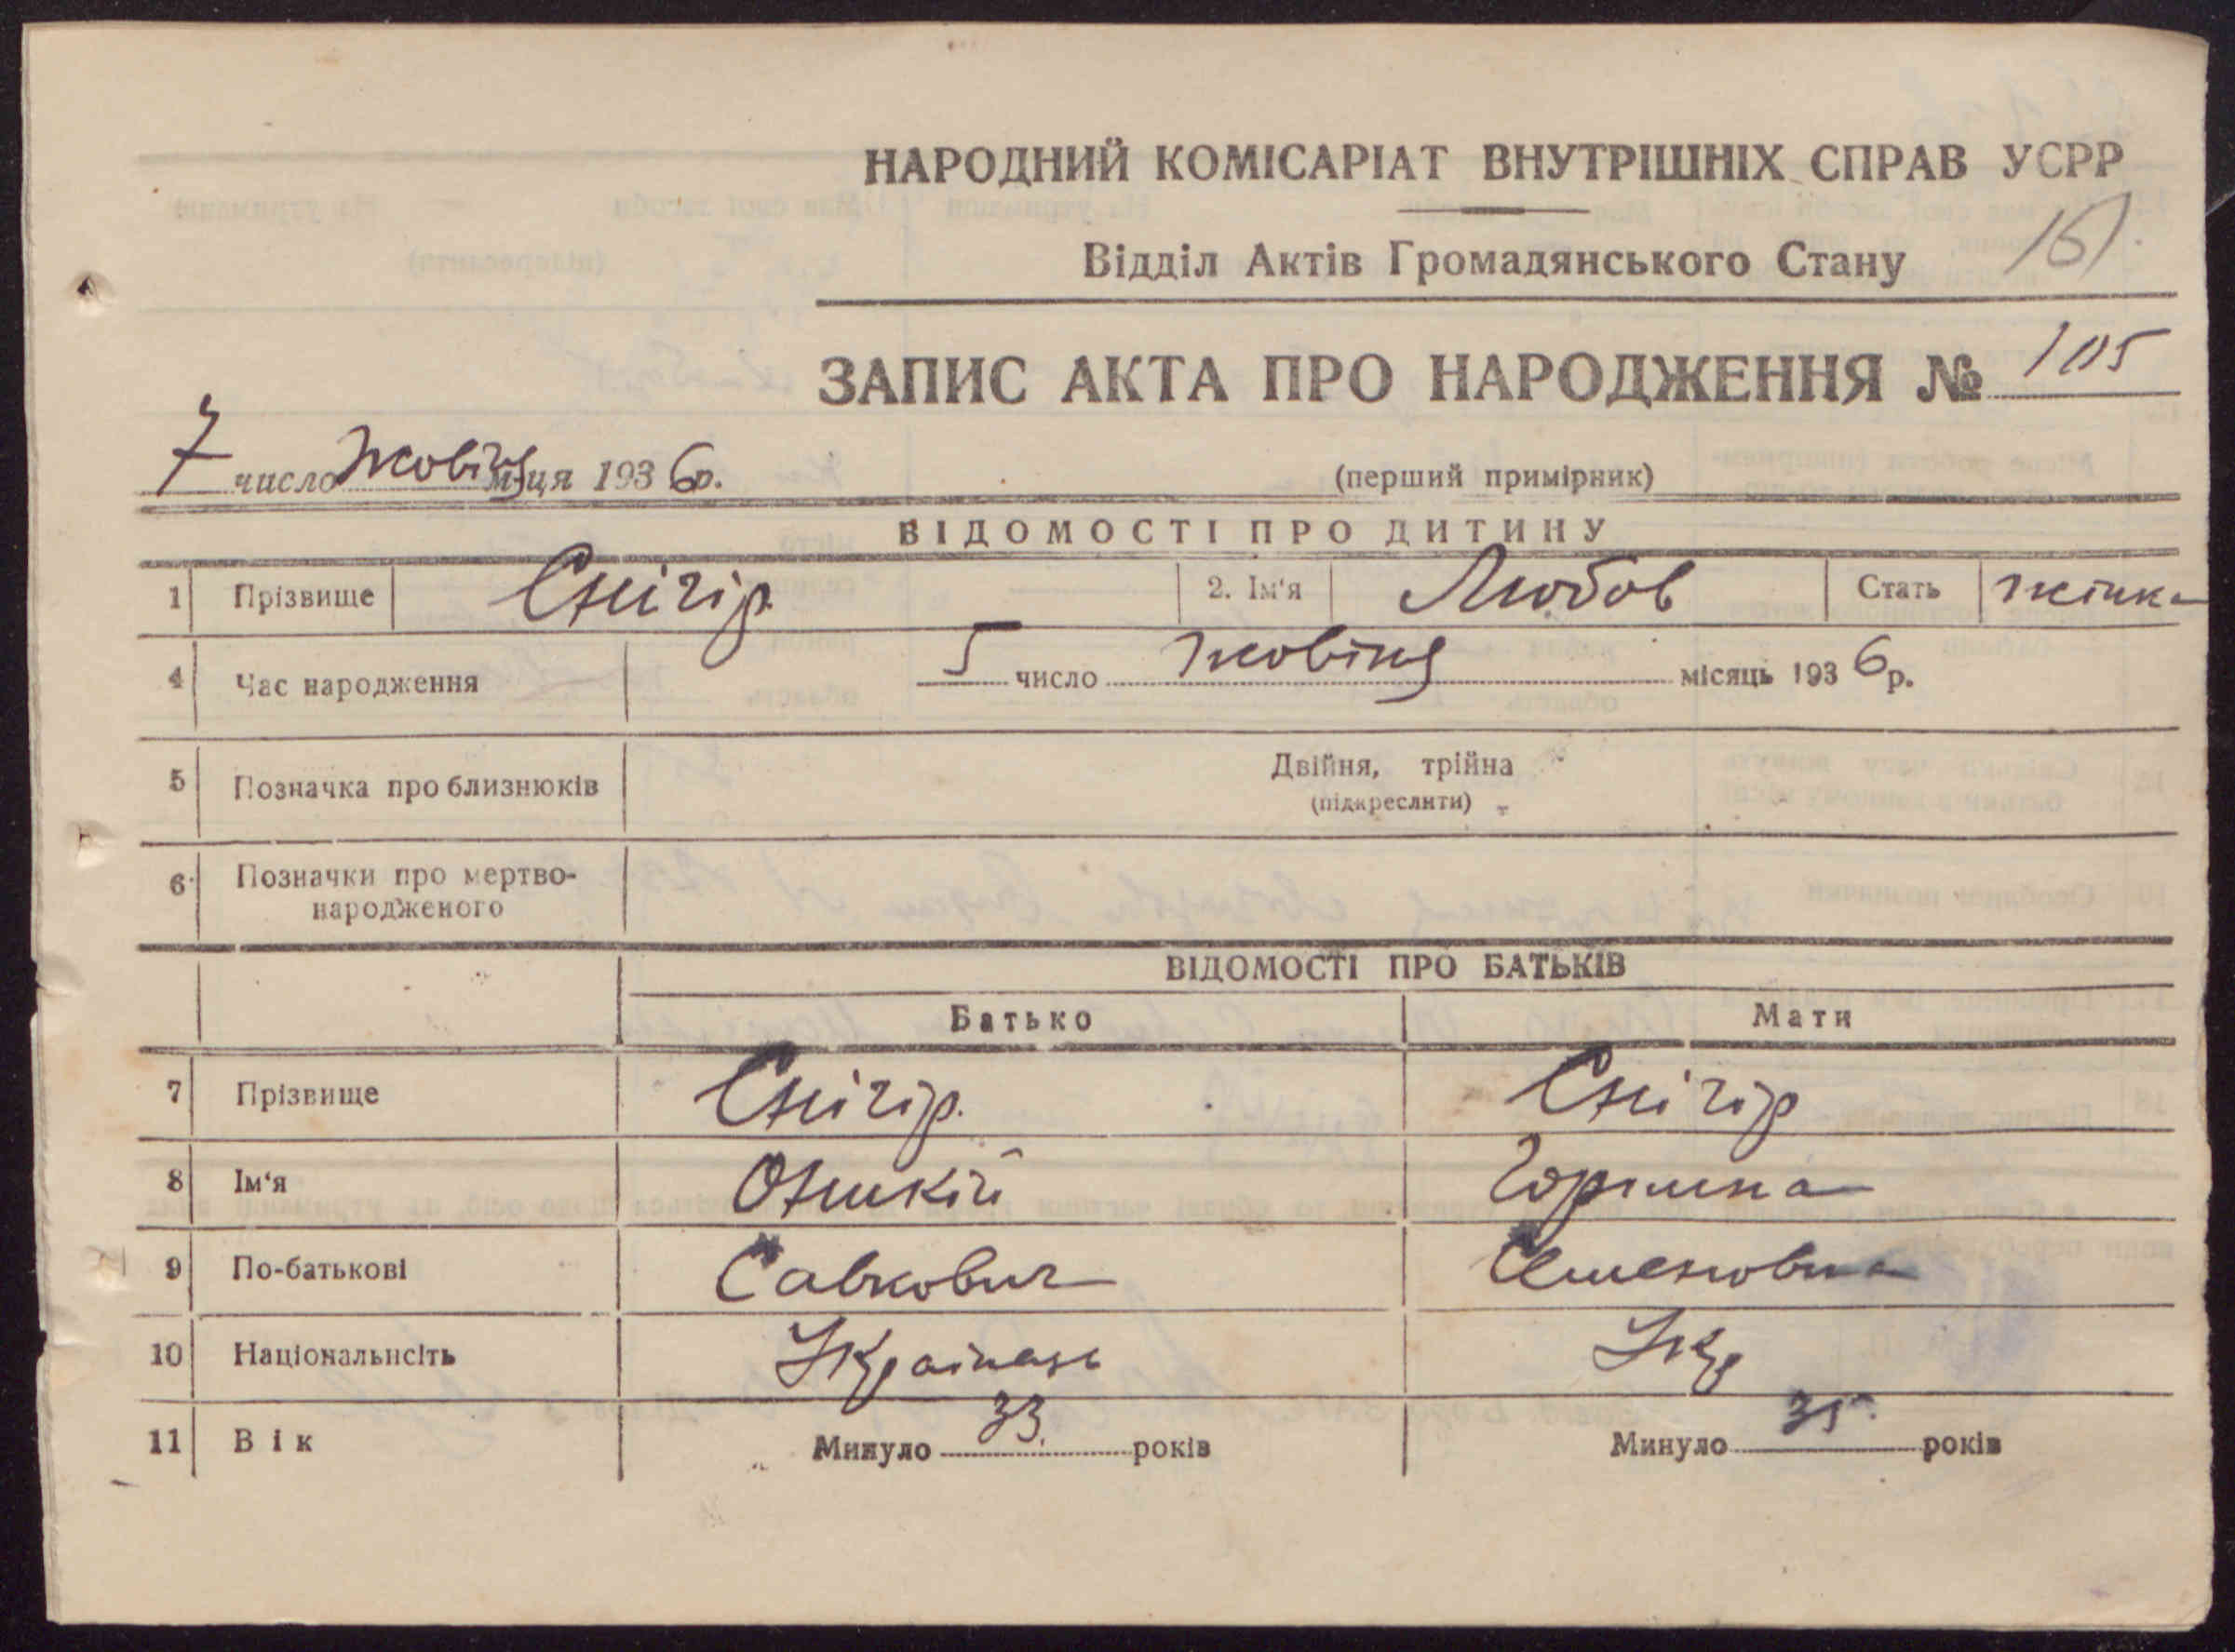 НАРОДНИЙ КОМІСАРІАТ ВНУТРІШНІХ СПРАВ УСРР
Відділ Актів Громадянського Стану
ЗАПИС АКТА ПРО НАРОДЖЕННЯ № 105
7 число жовтня м-ця 1936 р.
(перший примірник)
ВІДОМОСТІ ПРО ДИТИНУ
1 Прізвище Снігір 2. Ім'я Любов Стать жінка
4 Час народження 5 число жовтня місяць 1936 р.
5 Позначка про близнюків Двійня, трійна
(підкреслити)
6 Позначки про мертво-
народженого
ВІДОМОСТІ ПРО БАТЬКІВ
Батько Мати
7 Прізвище Снігір Снігір
8 Ім'я
9 По-батькові Савкович Семеновна
10 Національнсіть Українець Укр
11 Вік Минуло 33 років Минуло 35 років